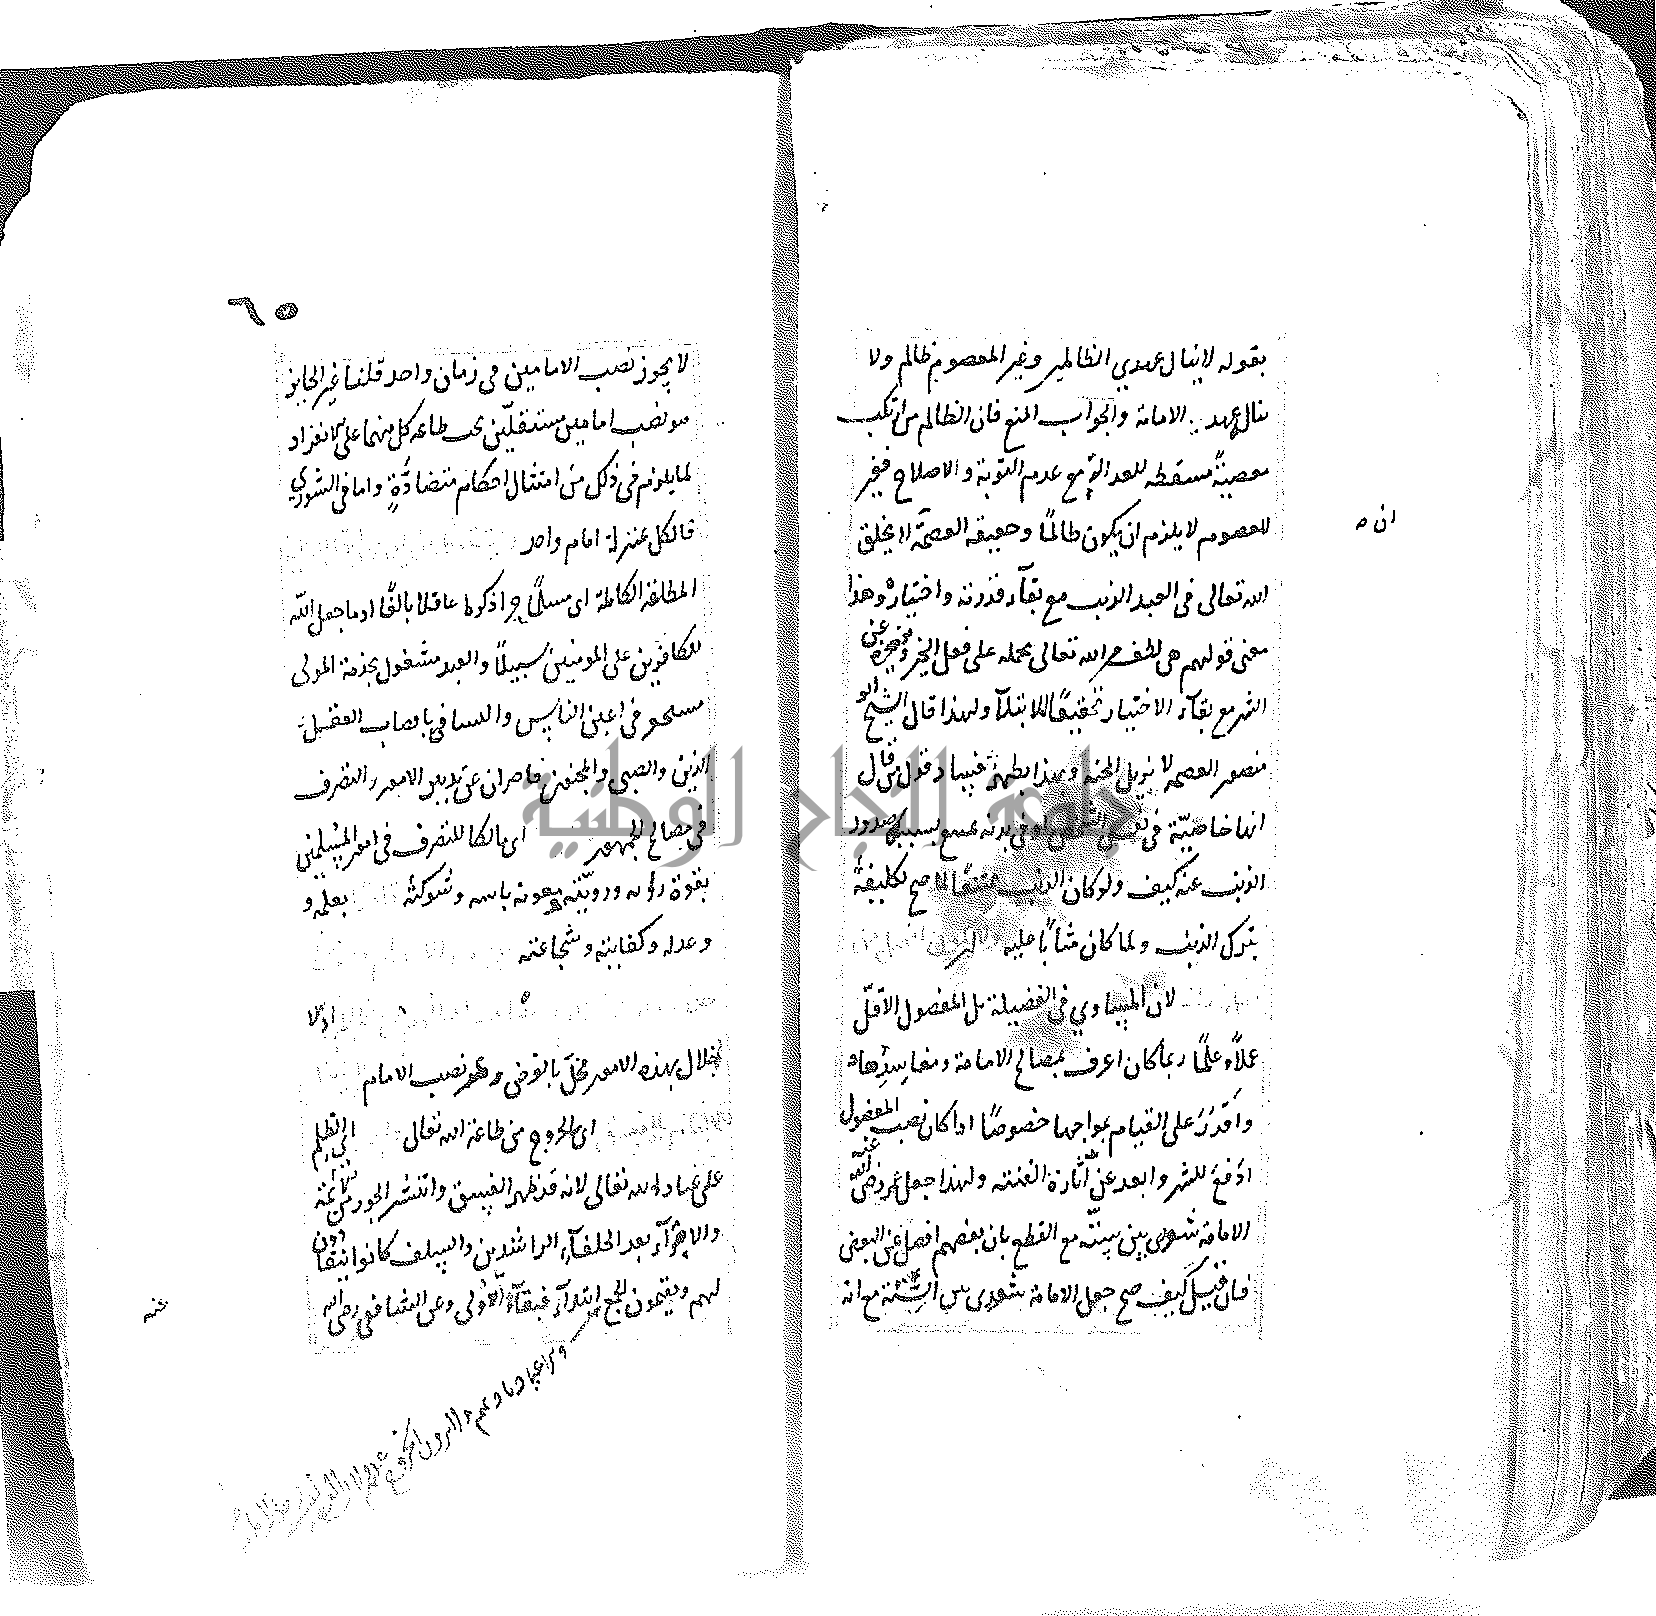 بقوله لا ينال عهدي الظالمين وغير المعصوم ظالم ولا
ينال عهد الامامة والجواب المنع فان الظالم من ارتكب
معصيةً مسقطه للعدالة مع عدم التوبة والاصلاح فغير
المعصوم لا يلزم ان يكون ظالمًا وحقيقة العصمة الا يخلق
ان صح
الله تعالى في العبد الذنب مع بقآء قدرته واختياره وهذا
معنى قولهم هي لطف من الله تعالى يحمله على فعل الخير ويزجره عن
الشر مع بقآء الاختيار تحقيقًا للابتلآ ولهذا قال الشيخ ابو
منصور العصمة لا تزيل المحنة وبهذا يظهر فساد قول من قال
انها خاصيّة في نفس الشخص او في بدنه يمتنع بسببها صدور
الذنب عنه كيف ولو كان الذنب ممتنعًا لما صح تكليفه
بترك الذنب ولما كان مثابًا عليه
لان المساوي في الفضيلة بل المفضول الاقلّ
عملاً وعلمًا ربما كان اعرف بمصالح الامامة ومفاسدها
واقدر على القيام بمواجبها خصوصًا اذا كان نصب المفضول
ادفع للشر وابعد عن اثارة الفتنة ولهذا جعل عمر رضي الله عنه
الامامة شورى بين ستّة مع القطع بان بعضهم افضل من البعض
فان قيل كيف صح جعل الامامة شورى بين الستّة مع انه
٦٥
لا يجوز نصب الامامين في زمان واحد قلنا غير الجايز
هو نصب امامين مستقلّين تجب طاعة كل منهما على الانفراد
لما يلزم في ذلك من امتثال احكام متضادّةٍ واما في الشورى
فالكل بمنزلة امام واحد
المطلقة الكاملة اى مسلمًا حرا ذكرا عاقلا بالغًا اذ ما جعل الله
للكافرين على المومنين سبيلًا والعبد مشغول بخدمة المولى
مستحقر في اعين الناس والنسا ناقصات العقل
الدين والصبي والمجنون قاصران عن تدبير الامور والتصرف
في مصالح الجمهور اى مالكا للتصرف في امور المسلمين
بقوة رايه ورويّته ومعونة باسه وشوكته بعلمه و
وعدله وكفايته وشجاعته
اذ الا
خلال بهذه الامور مخلّ بالغرض من نصب الامام
اى الخروج من طاعة الله تعالى اى الظلم
على عباد الله تعالى لانه قد ظهر الفسق وانتشر الجور من الائمة
والامرآء بعد الخلفآء الراشدين والسلف كانوا ينقادون
لهم ويقيمون الجمع ابتدآء فبقآءً اولى وعن الشافعي رضى الله
عنه